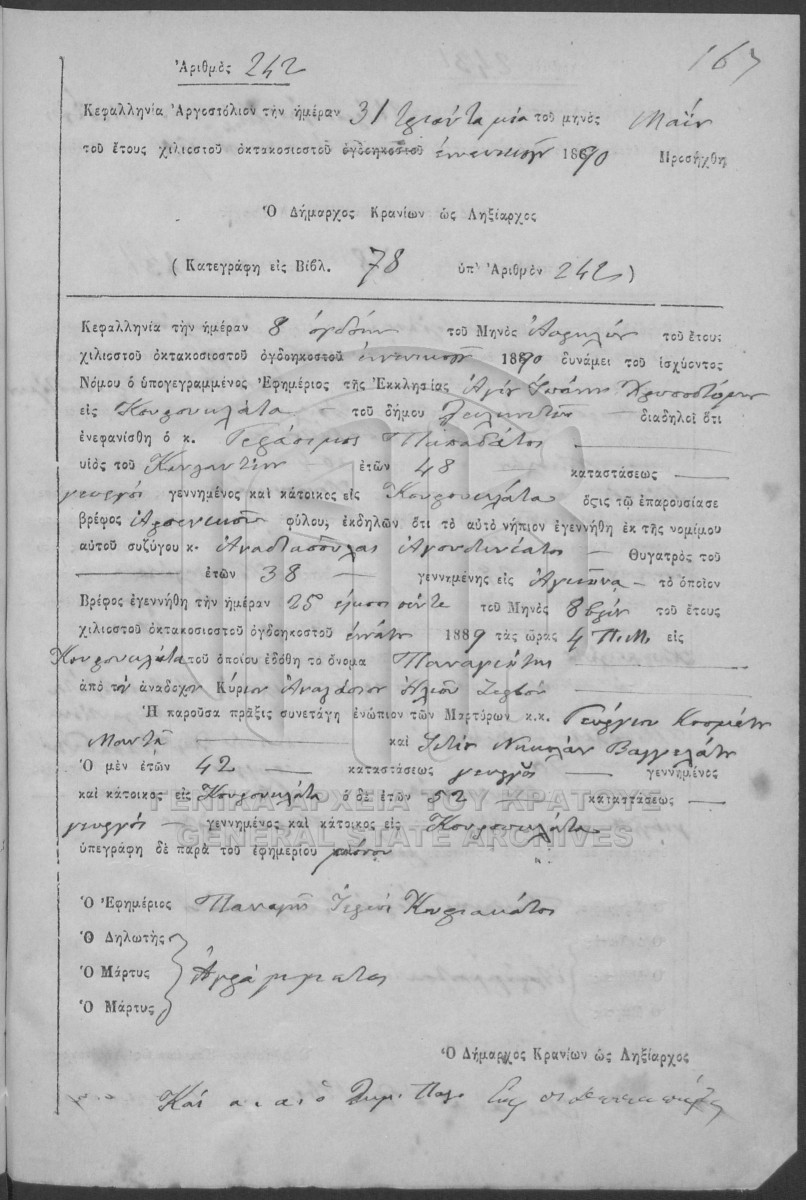 167
Ἀριθμὸς 242
Κεφαλληνία Ἀργοστόλιον τὴν ἡμέραν 31 τριάντα μία τοῦ μηνὸς Μαΐου
τοῦ ἔτους χιλιοστοῦ ὀκτακοσιοστοῦ ὀγδοηκοστοῦ ἐννενηκοστοῦ 1890 Προσήχθη
Ὁ Δήμαρχος Κρανίων ὡς Ληξίαρχος
(Κατεγράφη εἰς Βιβλ. 78 ὑπ' Ἀριθμὸν 242)
Κεφαλληνία τὴν ἡμέραν 8 ὀγδόην τοῦ Μηνὸς Ἀπριλίου τοῦ ἔτους
χιλιοστοῦ ὀκτακοσιοστοῦ ὀγδοηκοστοῦ ἐννενηκοστοῦ 1890 δυνάμει τοῦ ἰσχύοντος
Νόμου ὁ ὑπογεγραμμένος Ἐφημέριος τῆς Ἐκκλησίας Ἁγίου Ἰωάννου Χρυσοστόμου
εἰς Κουρουκλάτα τοῦ δήμου διαδηλοῖ ὅτι
ἐνεφανίσθη ὁ κ. Γεράσιμος Παπαδάτος
υἱὸς τοῦ ἐτῶν 48 καταστάσεως
γεωργὸς γεννημένος καὶ κάτοικος εἰς Κουρουκλάτα ὅςτις τῷ ἐπαρουσίασε
βρέφος ἀρσενικοῦ φύλου, ἐκδηλῶν ὅτι τὸ αὐτὸ νήπιον ἐγεννήθη ἐκ τῆς νομίμου
αὐτοῦ συζύγου κ. Ἀναστασούλας Θυγατρὸς τοῦ
ἐτῶν 38 γεννημένης εἰς τὸ ὁποῖον
Βρέφος ἐγεννήθη τὴν ἡμέραν 25 εἴκοσι πέντε τοῦ Μηνὸς 8βρίου τοῦ ἔτους
χιλιοστοῦ ὀκτακοσιοστοῦ ὀγδοηκοστοῦ ἐννάτου 1889 τὰς ὥρας 4 Π.Μ. εἰς
Κουρουκλάτα τοῦ ὁποίου ἐδόθη τὸ ὄνομα Παναγιώτης
ἀπὸ τὸν ἀνάδοχον Κύριον
Ἡ παροῦσα πρᾶξις συνετάγη ἐνώπιον τῶν Μαρτύρων κ.κ. Γεώργιον
καὶ Νικολάου Βαγγελάτου
Ὁ μὲν ἐτῶν 42 καταστάσεως γεωργὸς γεννημένος
καὶ κάτοικος εἰς Κουρουκλάτα ὁ δὲ ἐτῶν 52 καταστάσεως
ΓΕΝΙΚΑ ΑΡΧΕΙΑ ΤΟΥ ΚΡΑΤΟΥΣ
γεωργὸς γεννημένος καὶ κάτοικος εἰς Κουρουκλάτα
GENERAL STATE ARCHIVES
ὑπεγράφη δὲ παρὰ τοῦ ἐφημερίου μόνον
Ὁ Ἐφημέριος Παναγῆς Ἱερεὺς
Ὁ Δηλωτὴς
Ὁ Μάρτυς Ἀγράμματοι
Ὁ Μάρτυς
Ὁ Δήμαρχος Κρανίων ὡς Ληξίαρχος